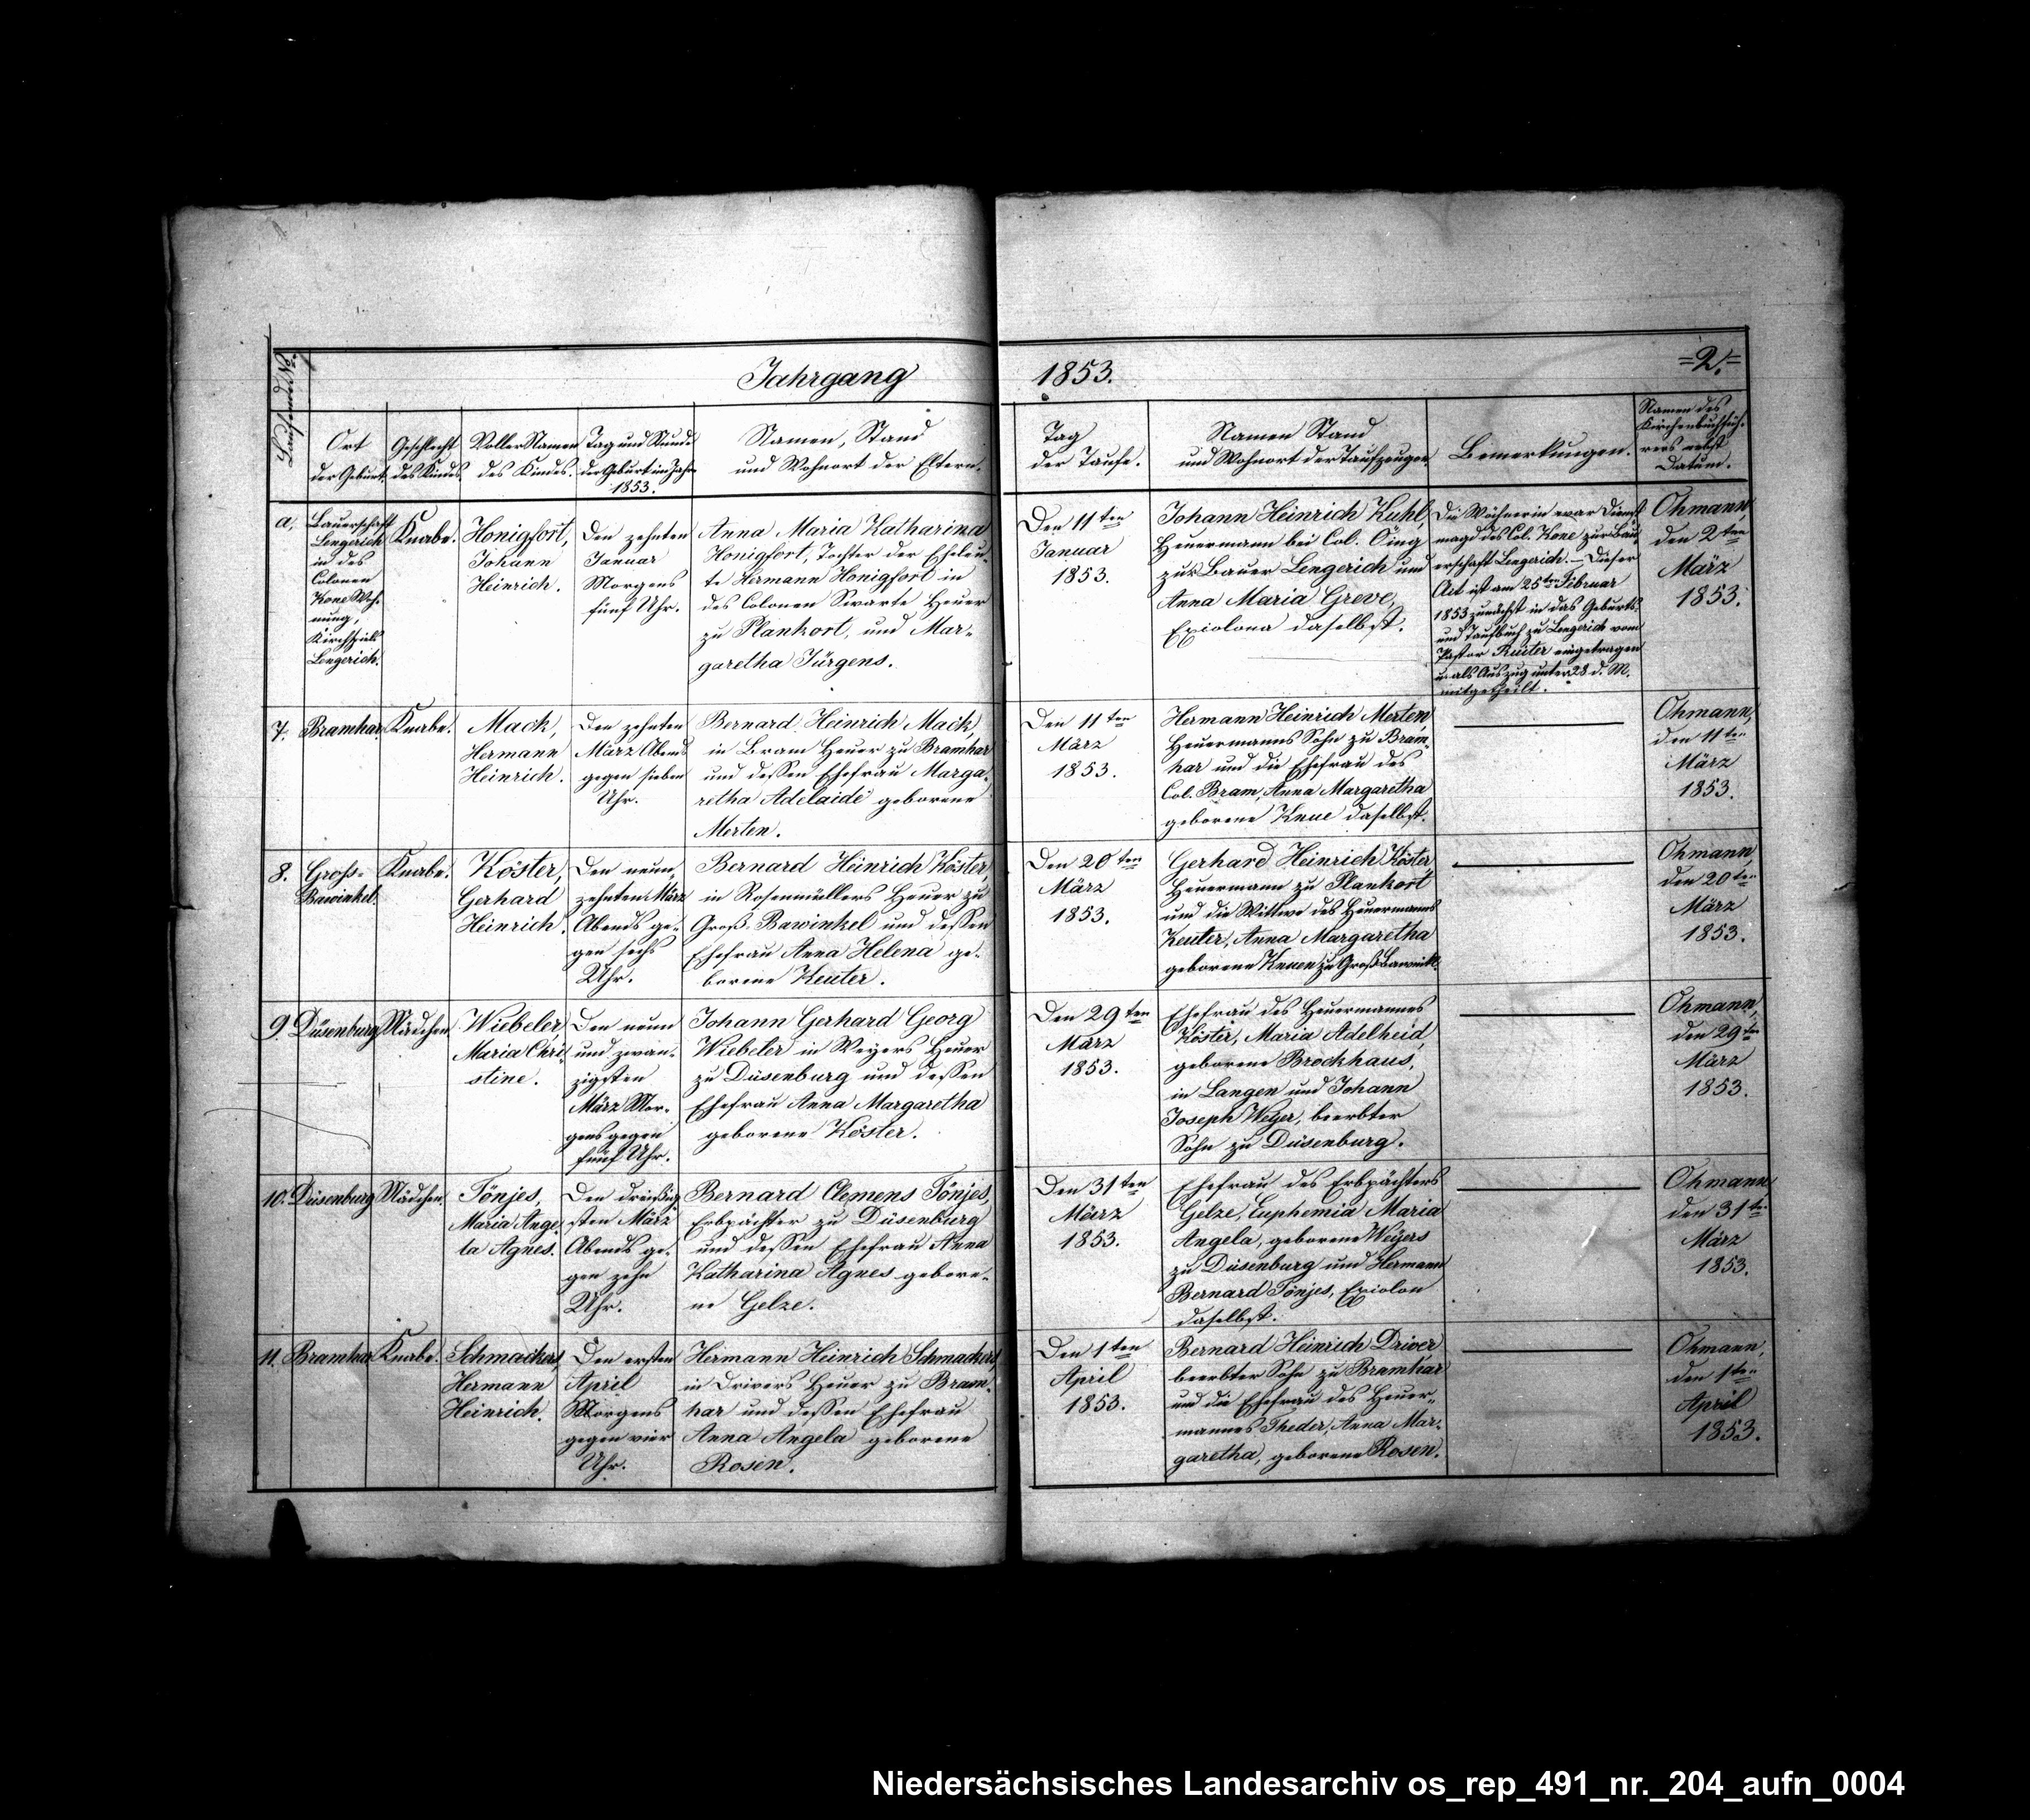 Jahrgang 1853.
=2.=
Laufende No.
Ort
der Geburt.
Geschlecht
des Kindes.
Voller Namen
des Kindes.
Tag und Stunde
der Geburt im Jahre
1853.
Namen, Stand
und Wohnort der Eltern.
Tag
der Taufe.
Namen Stand
und Wohnort der Taufzeugen.
Bemerkungen.
Namen des
Kirchenbuchfüh-
rers nebst
Datum.
a.
Bauerschaft
Lengerich
in des
Colonen
Kone Woh-
nung,
Kirchspiels
Lengerich.
Knabe.
Honigfort,
Johann
Heinrich.
Den zehnten
Januar
Morgens
fünf Uhr.
Anna Maria Katharina
Honigfort, Tochter der Eheleu-
te Hermann Honigfort in
des Colonen Swarte Heuer
zu Plankort, und Mar-
garetha Jürgens.
Den 11ten
Januar
1853.
Johann Heinrich Kuhl,
Heuermann bei Col. Oing
zur Bauer Lengerich und
Anna Maria Greve,
Exiolona daselbst.
Die Wöhnerin war Dienst
magd des Col. Kone zur Bau
erschaft Lengerich. — Dieser
Act ist am 25ten Februar
1853 zunächst in das Geburts-
und Taufbuch zu Lengerich vom
Pastor Reuter eingetragen
u. als Auszug unter 28 d. M.
mitgetheilt.
Ohmann,
den 2ten
März
1853.
7.
Bramhar.
Knabe.
Mack,
Hermann
Heinrich.
Den zehnten
März Abends
gegen sieben
Uhr.
Bernard Heinrich Mack,
in Bram Heuer zu Bramhar
und dessen Ehefrau Marga-
retha Adelaide geborene
Merten.
Den 11ten
März
1853.
Hermann Heinrich Merten,
Heuermanns Sohn zu Bram-
har und die Ehefrau des
Col. Bram, Anna Margaretha
geborene Knue daselbst.
Ohmann,
den 11ten
März
1853.
8.
Gross-
Bawinkel.
Knabe.
Köster,
Gerhard
Heinrich.
Den neun-
zehnten März
Abends ge-
gen sechs
Uhr.
Bernard Heinrich Köster,
in Rosenmüllers Heuer zu
Groß-Bawinkel und dessen
Ehefrau Anna Helena ge-
borene Keuter.
Den 20ten
März
1853.
Gerhard Heinrich Köster
Heuermann zu Plankort
und die Wittwe des Heuermanns
Keuter, Anna Margaretha
geborene Knuen zu Groß Bawinkl.
Ohmann,
den 20ten
März
1853.
9.
Düsenburg
Mädchen.
Wiebeler,
Maria Chri-
stine.
Den neun
und zwan-
zigsten
März Mor-
gens gegen
fünf Uhr.
Johann Gerhard Georg
Wiebeler in Weyers Heuer
zu Düsenburg und dessen
Ehefrau Anna Margaretha
geborene Köster.
Den 29ten
März
1853.
Ehefrau des Heuermannes
Köster, Maria Adelheid,
geborene Brockhaus,
in Langen und Johann
Joseph Weyer, beerbter
Sohn zu Düsenburg.
Ohmann,
den 29ten
März
1853.
10.
Düsenburg
Mädchen.
Tönjes,
Maria Ange-
la Agnes.
Den dreißig
sten März
Abends ge-
gen zehn
Uhr.
Bernard Clemens Tönjes,
Erbpächter zu Düsenburg
und dessen Ehefrau Anna
Katharina Agnes gebore-
ne Gelze.
Den 31ten
März
1853.
Ehefrau des Erbpächters
Gelze, Euphemia Maria
Angela, geborene Weyers
zu Düsenburg und Hermann
Bernard Tönjes, Exiolon
daselbst.
Ohmann,
den 31ten
März
1853.
11.
Bramhar
Knabe.
Schmackers,
Hermann
Heinrich.
Den ersten
April
Morgens
gegen vier
Uhr.
Hermann Heinrich Schmackers
in Drivers Heuer zu Bram-
har und dessen Ehefrau
Anna Angela geborene
Rosen.
Den 1ten
April
1853.
Bernard Heinrich Driver
beerbter Sohn zu Bramhar
und die Ehefrau des Heuer-
mannes Theder, Anna Mar-
garetha, geborene Rosen.
Ohmann,
den 1ten
April
1853.
Niedersächsisches Landesarchiv os_rep_491_nr._204_aufn_0004